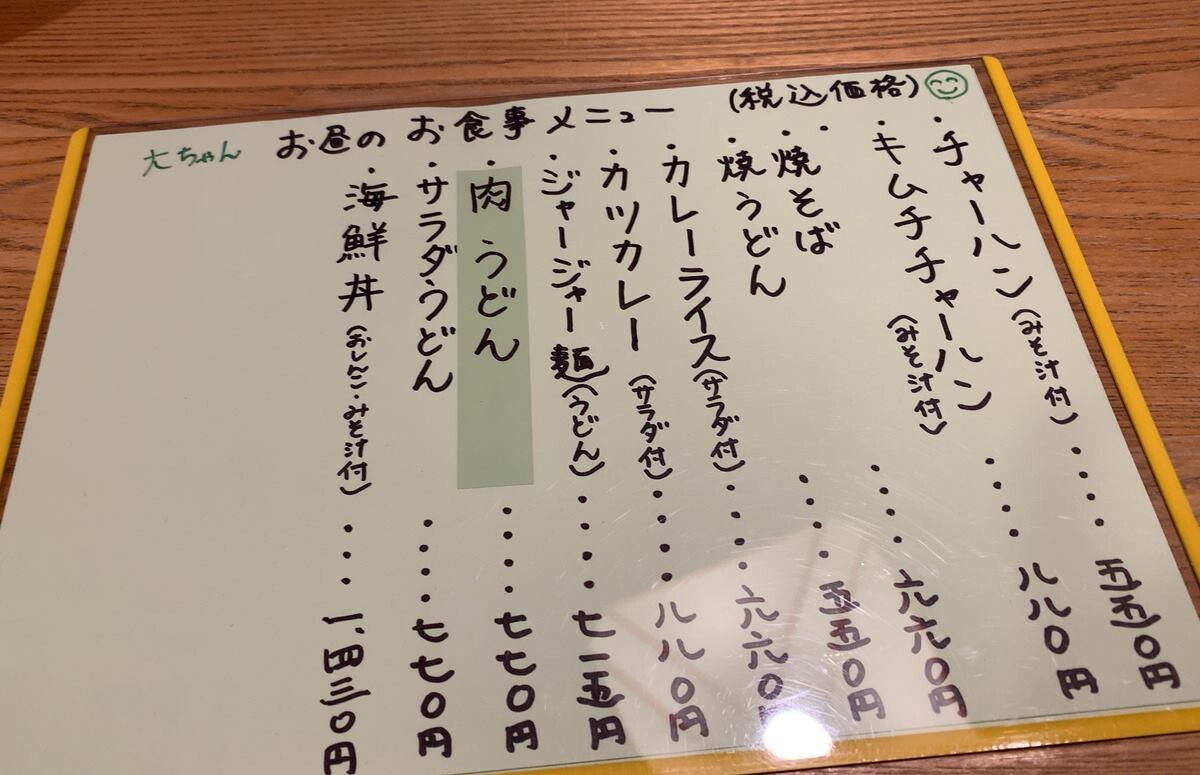 お昼のお食事メニュー (税込価格)
大ちゃん
・チャーハン(みそ汁付)・・・・五五〇円
・キムチチャーハン(みそ汁付)・・・・八八〇円
・焼そば・・・・六六〇円
・焼うどん・・・・五五〇円
・カレーライス(サラダ付)・・・・六六〇円
・カツカレー(サラダ付)・・・・八八〇円
・ジャージャー麺(うどん)・・・・七一五円
・肉うどん・・・・七七〇円
・サラダうどん・・・・七七〇円
・海鮮丼(おしんこ・みそ汁付)・・・一、四三〇円